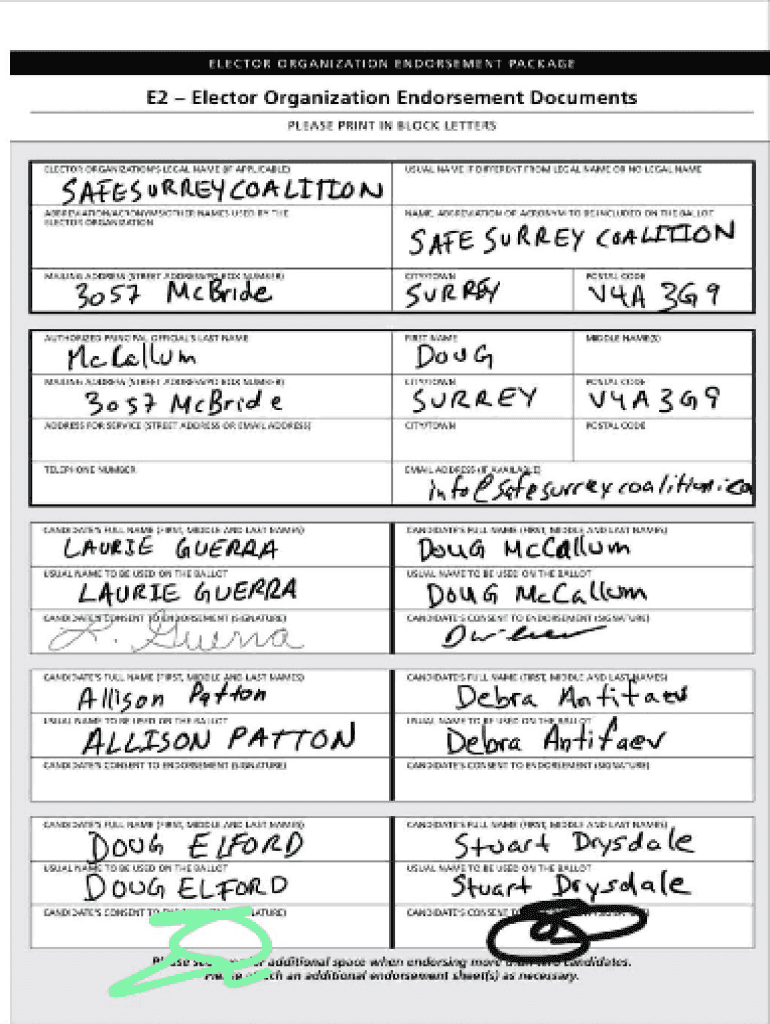 ELECTOR ORGANIZATION ENDORSEMENT PACKAGE
E2 – Elector Organization Endorsement Documents
PLEASE PRINT IN BLOCK LETTERS
ELECTOR ORGANIZATION'S LEGAL NAME (IF APPLICABLE)
SAFE SURREY COALITION
USUAL NAME IF DIFFERENT FROM LEGAL NAME OR NO LEGAL NAME
ABBREVIATION/ACRONYMS/OTHER NAMES USED BY THE
ELECTOR ORGANIZATION
NAME, ABBREVIATION OR ACRONYM TO BE INCLUDED ON THE BALLOT
SAFE SURREY COALITION
MAILING ADDRESS (STREET ADDRESS/PO BOX NUMBER)
3057 McBride
CITY/TOWN
SURREY
POSTAL CODE
V4A 3G9
AUTHORIZED PRINCIPAL OFFICIAL'S LAST NAME
McCallum
FIRST NAME
DOUG
MIDDLE NAME(S)
MAILING ADDRESS (STREET ADDRESS/PO BOX NUMBER)
3057 McBride
CITY/TOWN
SURREY
POSTAL CODE
V4A 3G9
ADDRESS FOR SERVICE (STREET ADDRESS OR EMAIL ADDRESS)
CITY/TOWN
POSTAL CODE
TELEPHONE NUMBER
EMAIL ADDRESS (IF AVAILABLE)
info@safesurreycoalition.ca
CANDIDATE'S FULL NAME (FIRST, MIDDLE AND LAST NAMES)
LAURIE GUERRA
CANDIDATE'S FULL NAME (FIRST, MIDDLE AND LAST NAMES)
DOUG McCallum
USUAL NAME TO BE USED ON THE BALLOT
LAURIE GUERRA
USUAL NAME TO BE USED ON THE BALLOT
DOUG McCallum
CANDIDATE'S CONSENT TO ENDORSEMENT (SIGNATURE)
L. Guerra
CANDIDATE'S CONSENT TO ENDORSEMENT (SIGNATURE)
CANDIDATE'S FULL NAME (FIRST, MIDDLE AND LAST NAMES)
Allison Patton
CANDIDATE'S FULL NAME (FIRST, MIDDLE AND LAST NAMES)
Debra Antifaev
USUAL NAME TO BE USED ON THE BALLOT
ALLISON PATTON
USUAL NAME TO BE USED ON THE BALLOT
Debra Antifaev
CANDIDATE'S CONSENT TO ENDORSEMENT (SIGNATURE)
CANDIDATE'S CONSENT TO ENDORSEMENT (SIGNATURE)
CANDIDATE'S FULL NAME (FIRST, MIDDLE AND LAST NAMES)
DOUG ELFORD
CANDIDATE'S FULL NAME (FIRST, MIDDLE AND LAST NAMES)
Stuart Drysdale
USUAL NAME TO BE USED ON THE BALLOT
DOUG ELFORD
USUAL NAME TO BE USED ON THE BALLOT
Stuart Drysdale
CANDIDATE'S CONSENT TO
CANDIDATE'S CONSENT
Please additional space when endorsing more than two candidates.
Please an additional endorsement sheet(s) as necessary.